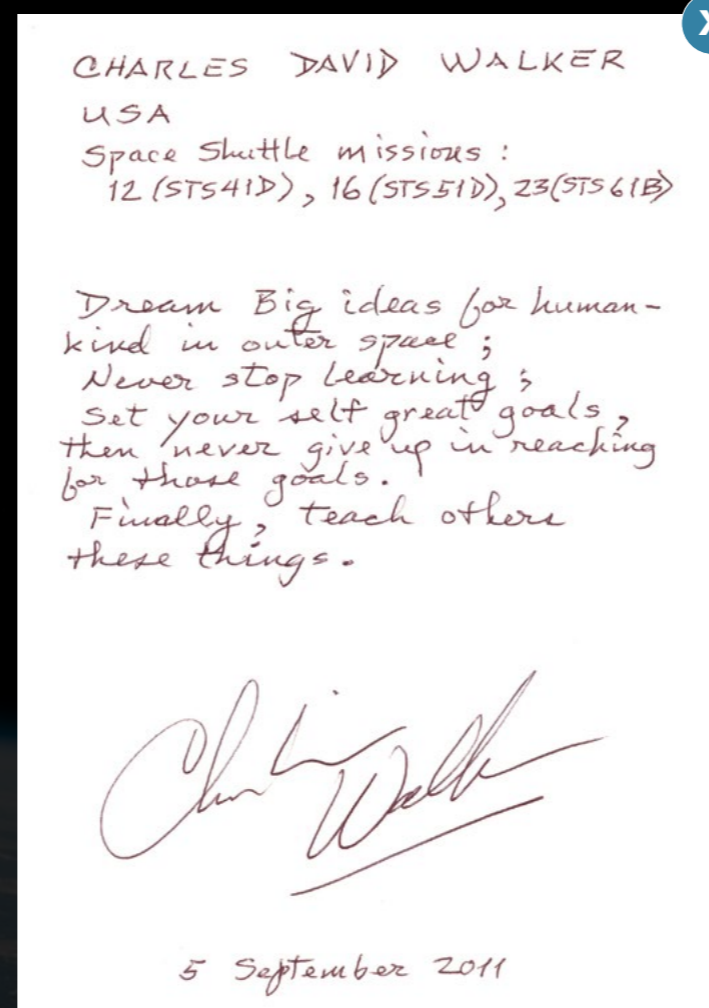 CHARLES DAVID WALKER
USA
Space Shuttle missions:
12 (STS41D), 16 (STS51D), 23 (STS61B)
Dream Big ideas for human-
kind in outer space;
Never stop learning;
Set your self great goals,
then never give up in reaching
for those goals.
Finally, teach others
these things.
Charlie Walker
5 September 2011
X